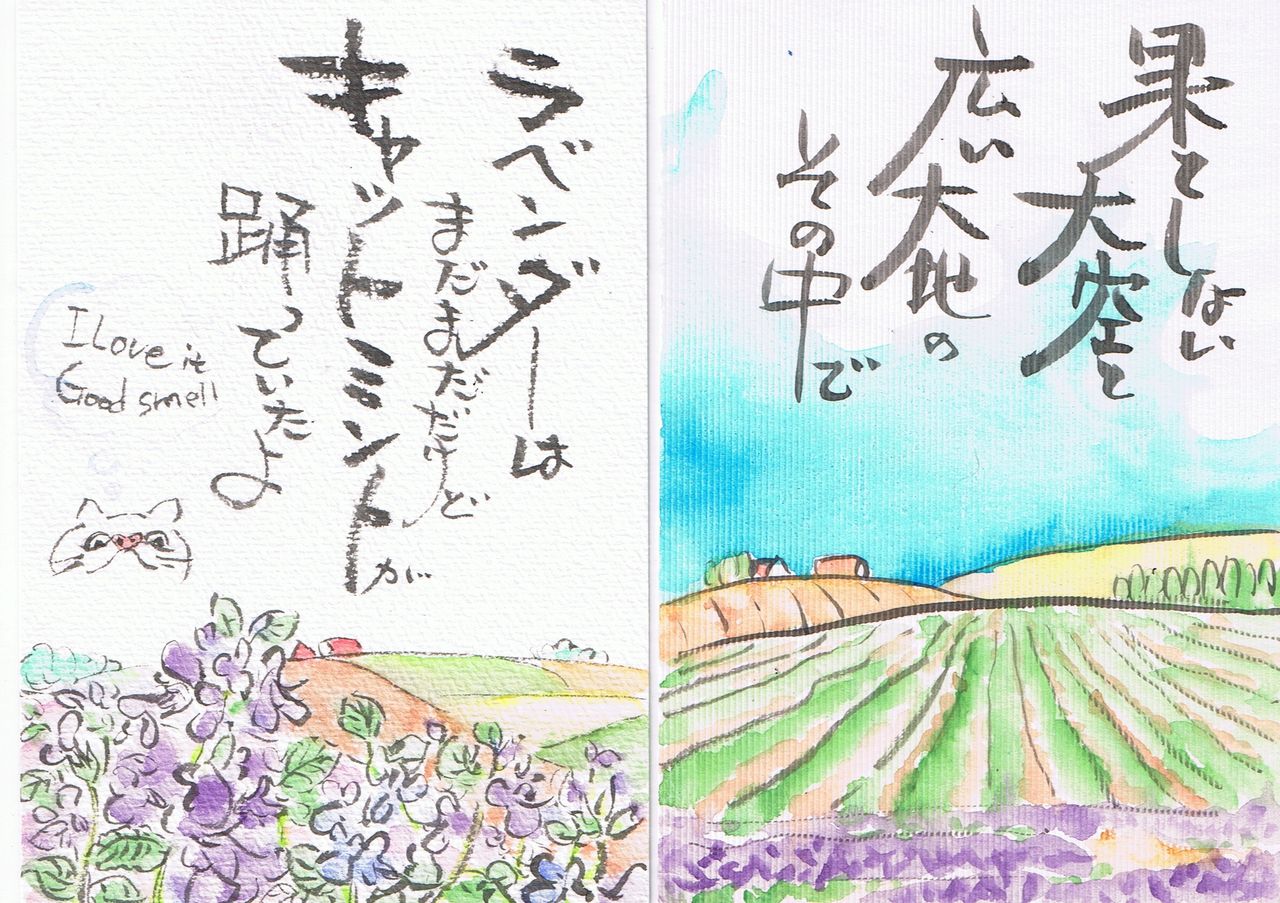 果てしない
大空と
広い大地の
その中で
ラベンダーは
まだまだだけど
キャットミントが
踊っていたよ
I Love it
Good smell